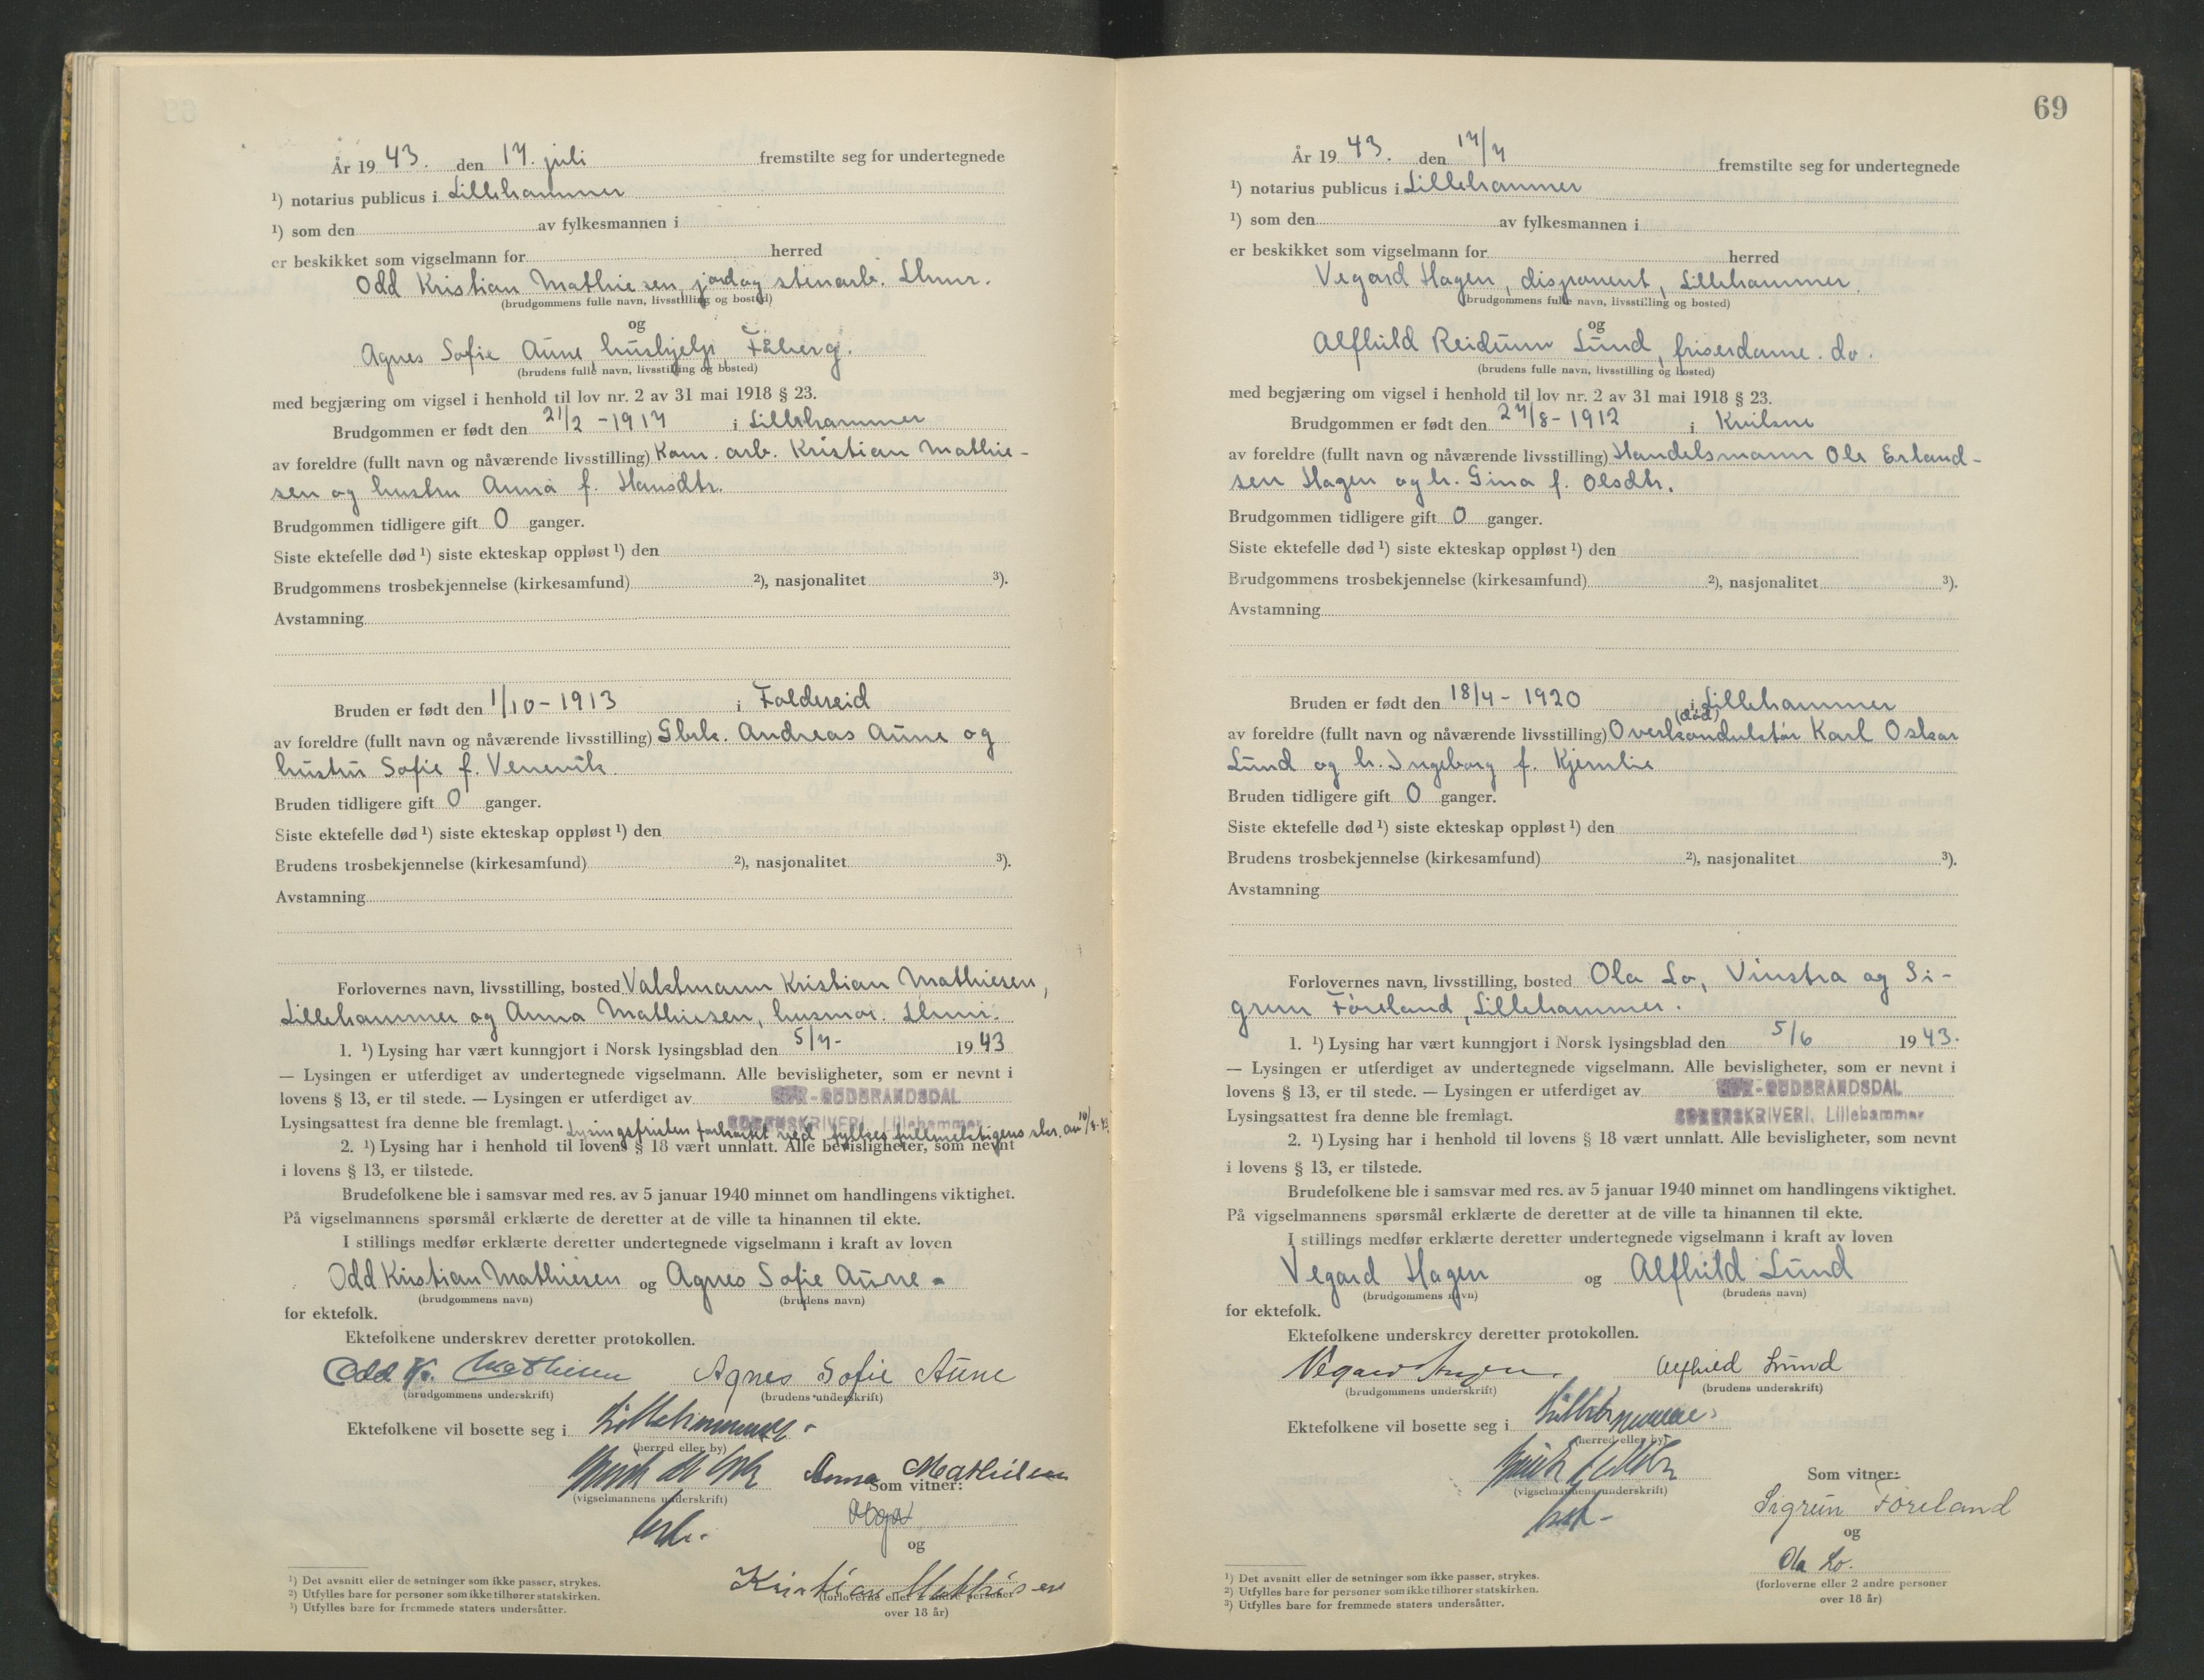 År 19 43. den 17. juli fremstilte seg for undertegnede
¹) notarius publicus i Lillehammer
¹) som den av fylkesmannen i
er beskikket som vigselmann for herred
Odd Kristian Mathiesen, jord og stenarb. Lhmr.
(brudgommens fulle navn, livsstilling og bosted)
og
Agnes Sofie Aune, hushjelp, Fåberg.
(brudens fulle navn, livsstilling og bosted)
med begjæring om vigsel i henhold til lov nr. 2 av 31 mai 1918 § 23.
Brudgommen er født den 21/2 - 1917 i Lillehammer
av foreldre (fullt navn og nåværende livsstilling) Kom. arb. Kristian Mathie-
sen og hustru Anna f. Hansdtr.
Brudgommen tidligere gift 0 ganger.
Siste ektefelle død ¹) siste ekteskap oppløst ¹) den
Brudgommens trosbekjennelse (kirkesamfund) ²), nasjonalitet ³).
Avstamning
Bruden er født den 1/10 - 1913 i Foldereid
av foreldre (fullt navn og nåværende livsstilling) Gbrk. Andreas Aune og
hustru Sofie f. Venevik
Bruden tidligere gift 0 ganger.
Siste ektefelle død ¹) siste ekteskap oppløst ¹) den
Brudens trosbekjennelse (kirkesamfund) ²), nasjonalitet ³).
Avstamning
Forlovernes navn, livsstilling, bosted Vaktmann Kristian Mathiesen,
Lillehammer og Anna Mathiesen, husmor. Lhmr.
1. ¹) Lysing har vært kunngjort i Norsk lysingsblad den 5/7- 19 43
— Lysingen er utferdiget av undertegnede vigselmann. Alle bevisligheter, som er nevnt i
lovens § 13, er til stede. — Lysingen er utferdiget av SØR-GUDBRANDSDAL
Lysingsattest fra denne ble fremlagt. SORENSKRIVERI, Lillehammer
Lysingsfristen forkortet ved fylkesfullmektigens skr. av
2. ¹) Lysing har i henhold til lovens § 18 vært unnlatt. Alle bevisligheter, som nevnt
i lovens § 13, er tilstede.
Brudefolkene ble i samsvar med res. av 5 januar 1940 minnet om handlingens viktighet.
På vigselmannens spørsmål erklærte de deretter at de ville ta hinannen til ekte.
I stillings medfør erklærte deretter undertegnede vigselmann i kraft av loven
Odd Kristian Mathiesen og Agnes Sofie Aune
(brudgommens navn) (brudens navn)
for ektefolk.
Ektefolkene underskrev deretter protokollen.
Odd K. Mathiesen Agnes Sofie Aune
(brudgommens underskrift) (brudens underskrift)
Ektefolkene vil bosette seg i Lillehammer
(herred eller by)
Anna Mathiesen
Som vitner:
(vigselmannens underskrift)
og
Kristian Mathisen
(forloverne eller 2 andre personer
over 18 år)
¹) Det avsnitt eller de setninger som ikke passer, strykes.
²) Utfylles bare for personer som ikke tilhører statskirken.
³) Utfylles bare for fremmede staters undersåtter.
69
År 19 43. den 17/7 fremstilte seg for undertegnede
¹) notarius publicus i Lillehammer
¹) som den av fylkesmannen i
er beskikket som vigselmann for herred
Vegard Hagen, disponent, Lillehammer.
(brudgommens fulle navn, livsstilling og bosted)
og
Alfhild Reidunn Lund, friserdame. do.
(brudens fulle navn, livsstilling og bosted)
med begjæring om vigsel i henhold til lov nr. 2 av 31 mai 1918 § 23.
Brudgommen er født den 27/8 - 1912 i Kvikne
av foreldre (fullt navn og nåværende livsstilling) Handelsmann Ole Erland-
sen Hagen og h. Gina f. Olsdtr.
Brudgommen tidligere gift 0 ganger.
Siste ektefelle død ¹) siste ekteskap oppløst ¹) den
Brudgommens trosbekjennelse (kirkesamfund) ²), nasjonalitet ³).
Avstamning
Bruden er født den 18/4 - 1920 i Lillehammer
(død)
av foreldre (fullt navn og nåværende livsstilling) Overkonduktør Karl Oskar
Lund og h. Ingeborg f. Kjemlie
Bruden tidligere gift 0 ganger.
Siste ektefelle død ¹) siste ekteskap oppløst ¹) den
Brudens trosbekjennelse (kirkesamfund) ²), nasjonalitet ³).
Avstamning
Forlovernes navn, livsstilling, bosted Ola Lo, Vinstra og Si-
grun Føreland, Lillehammer.
1. ¹) Lysing har vært kunngjort i Norsk lysingsblad den 5/6 19 43.
— Lysingen er utferdiget av undertegnede vigselmann. Alle bevisligheter, som er nevnt i
lovens § 13, er til stede. — Lysingen er utferdiget av SØR-GUDBRANDSDAL
Lysingsattest fra denne ble fremlagt. SORENSKRIVERI, Lillehammer
2. ¹) Lysing har i henhold til lovens § 18 vært unnlatt. Alle bevisligheter, som nevnt
i lovens § 13, er tilstede.
Brudefolkene ble i samsvar med res. av 5 januar 1940 minnet om handlingens viktighet.
På vigselmannens spørsmål erklærte de deretter at de ville ta hinannen til ekte.
I stillings medfør erklærte deretter undertegnede vigselmann i kraft av loven
Vegard Hagen og Alfhild Lund
(brudgommens navn) (brudens navn)
for ektefolk.
Ektefolkene underskrev deretter protokollen.
Vegard Hagen Alfhild Lund
(brudgommens underskrift) (brudens underskrift)
Ektefolkene vil bosette seg i Lillehammer
(herred eller by)
Som vitner:
(vigselmannens underskrift)
Sigrun Føreland
og
Ola Lo.
(forloverne eller 2 andre personer
over 18 år)
¹) Det avsnitt eller de setninger som ikke passer, strykes.
²) Utfylles bare for personer som ikke tilhører statskirken.
³) Utfylles bare for fremmede staters undersåtter.